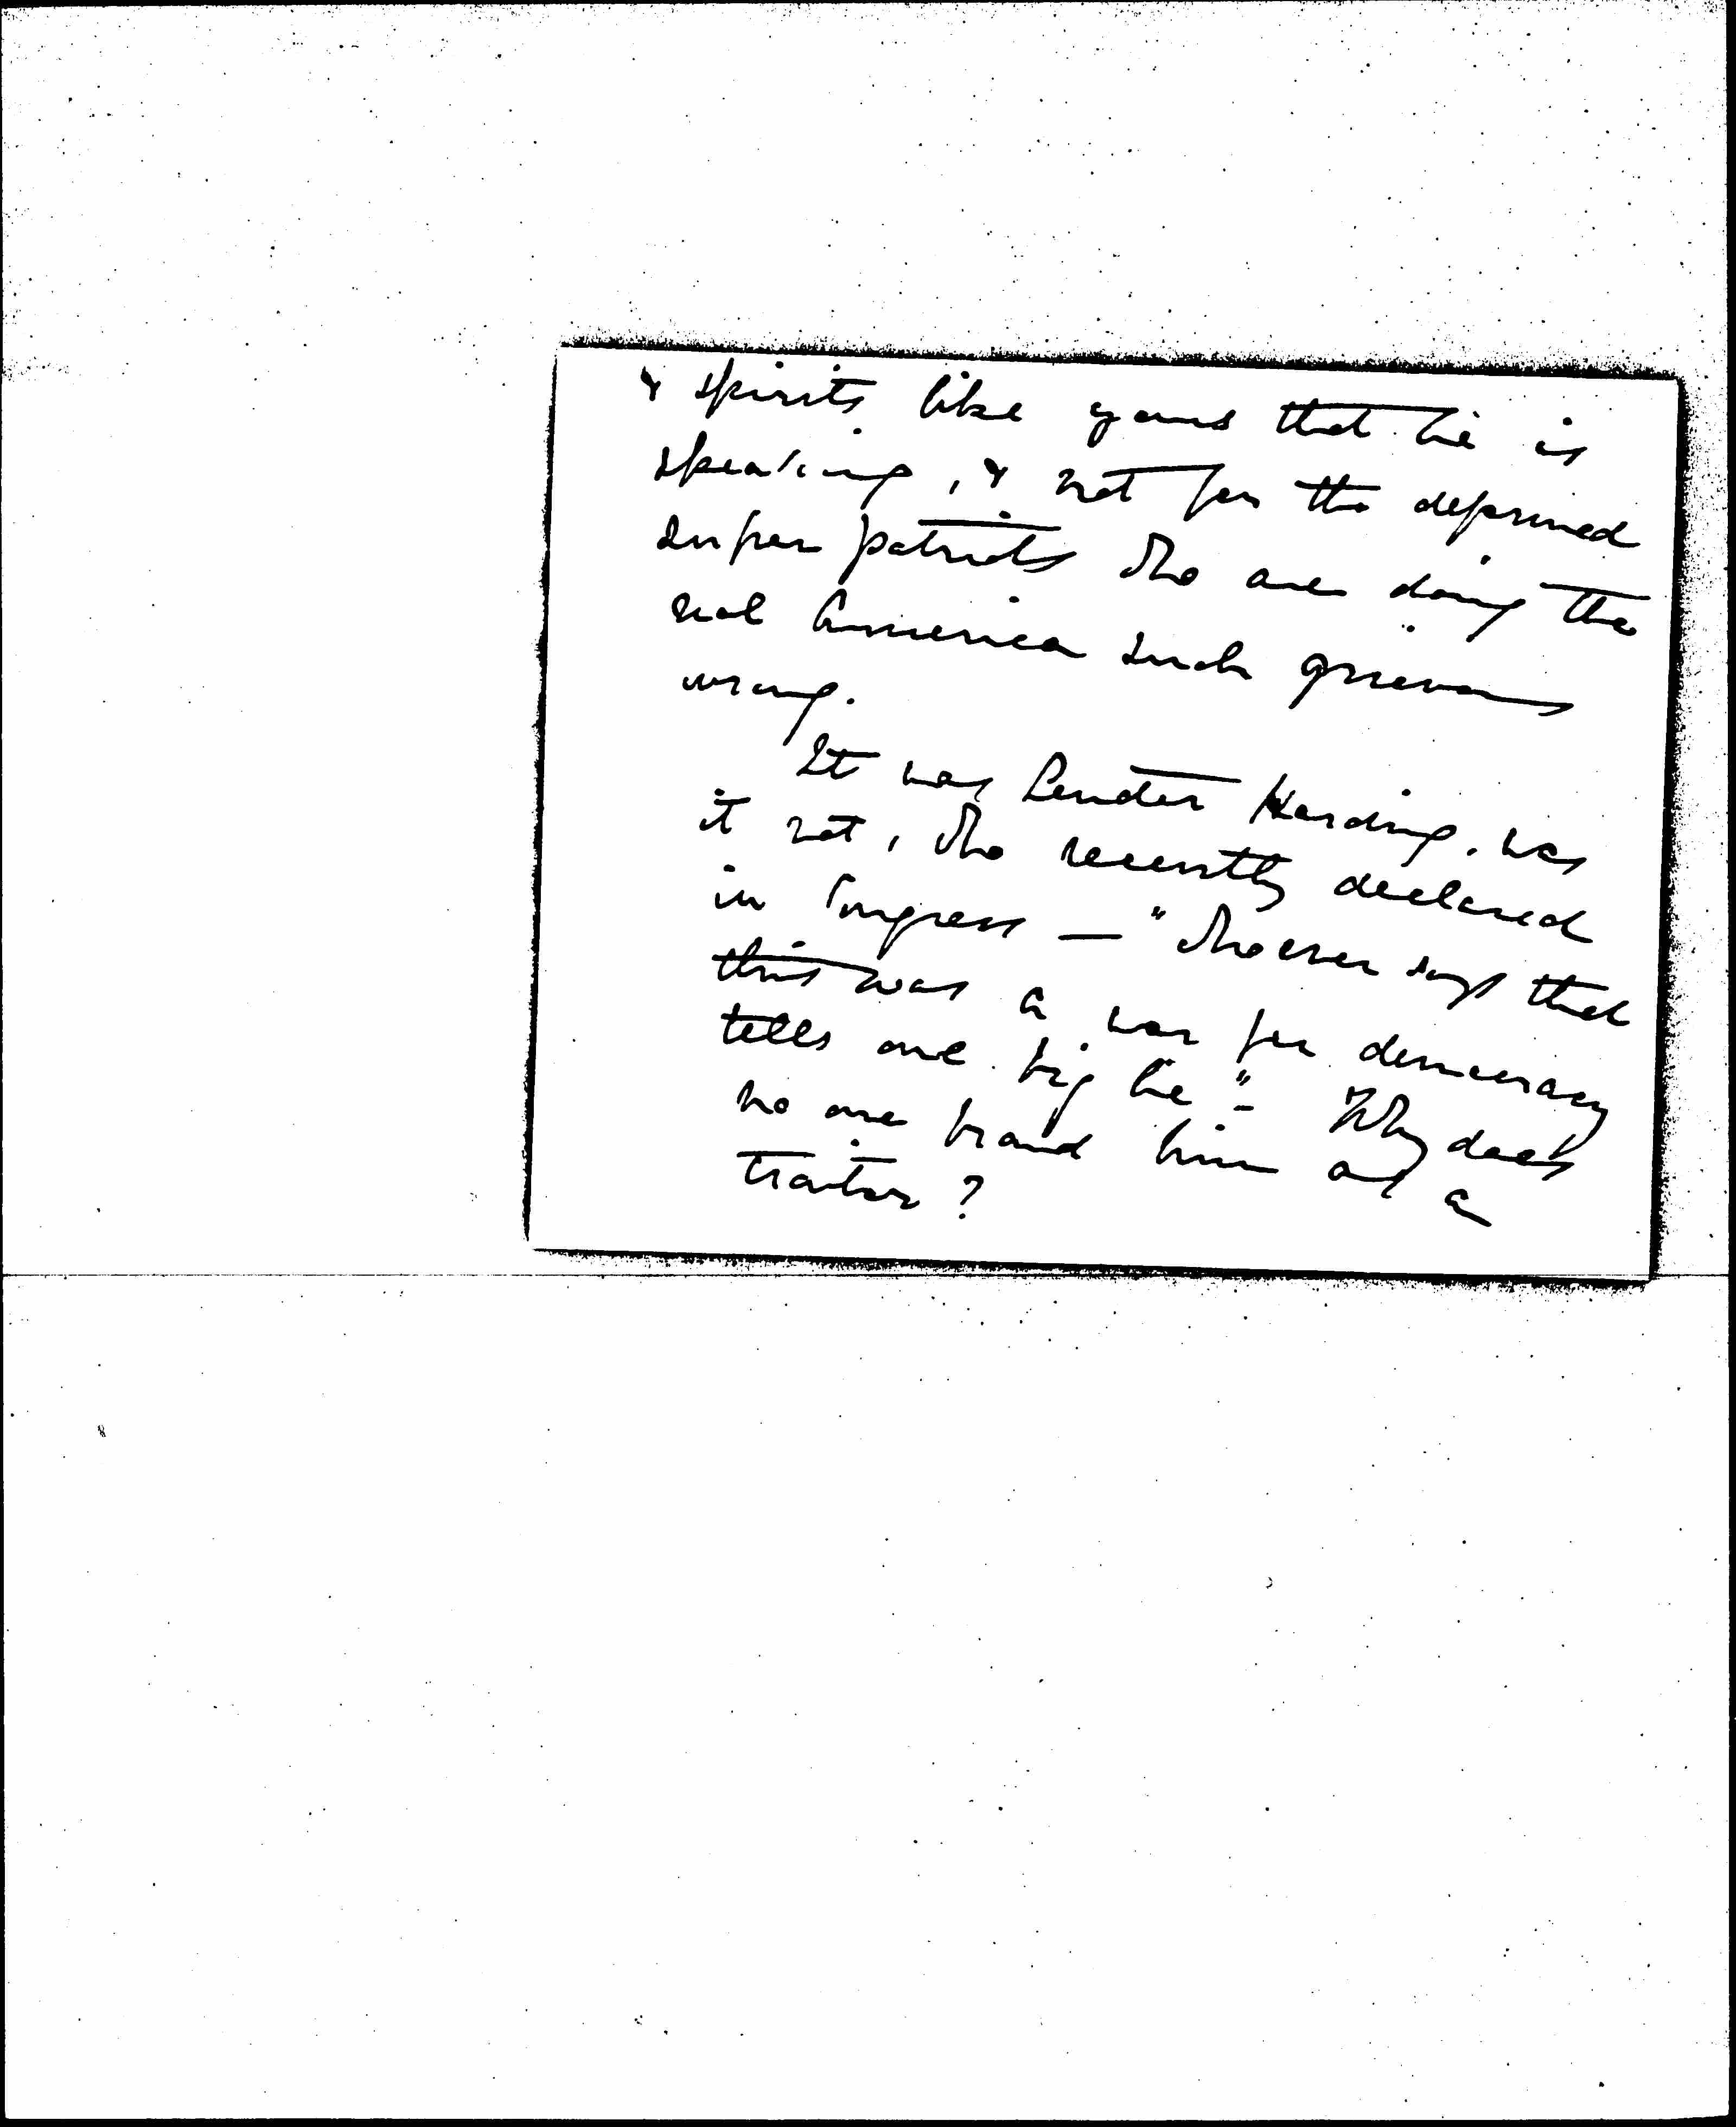 & spirits like yours that he is
speaking, & not for the depraved
super patriots who are doing the
real America such grievous
wrong.
It was Senator Harding, was
it not, who recently declared
in Congress — "Whoever says that
this was a war for democracy
tells one big lie" - Why does
no one brand him as a
traitor?